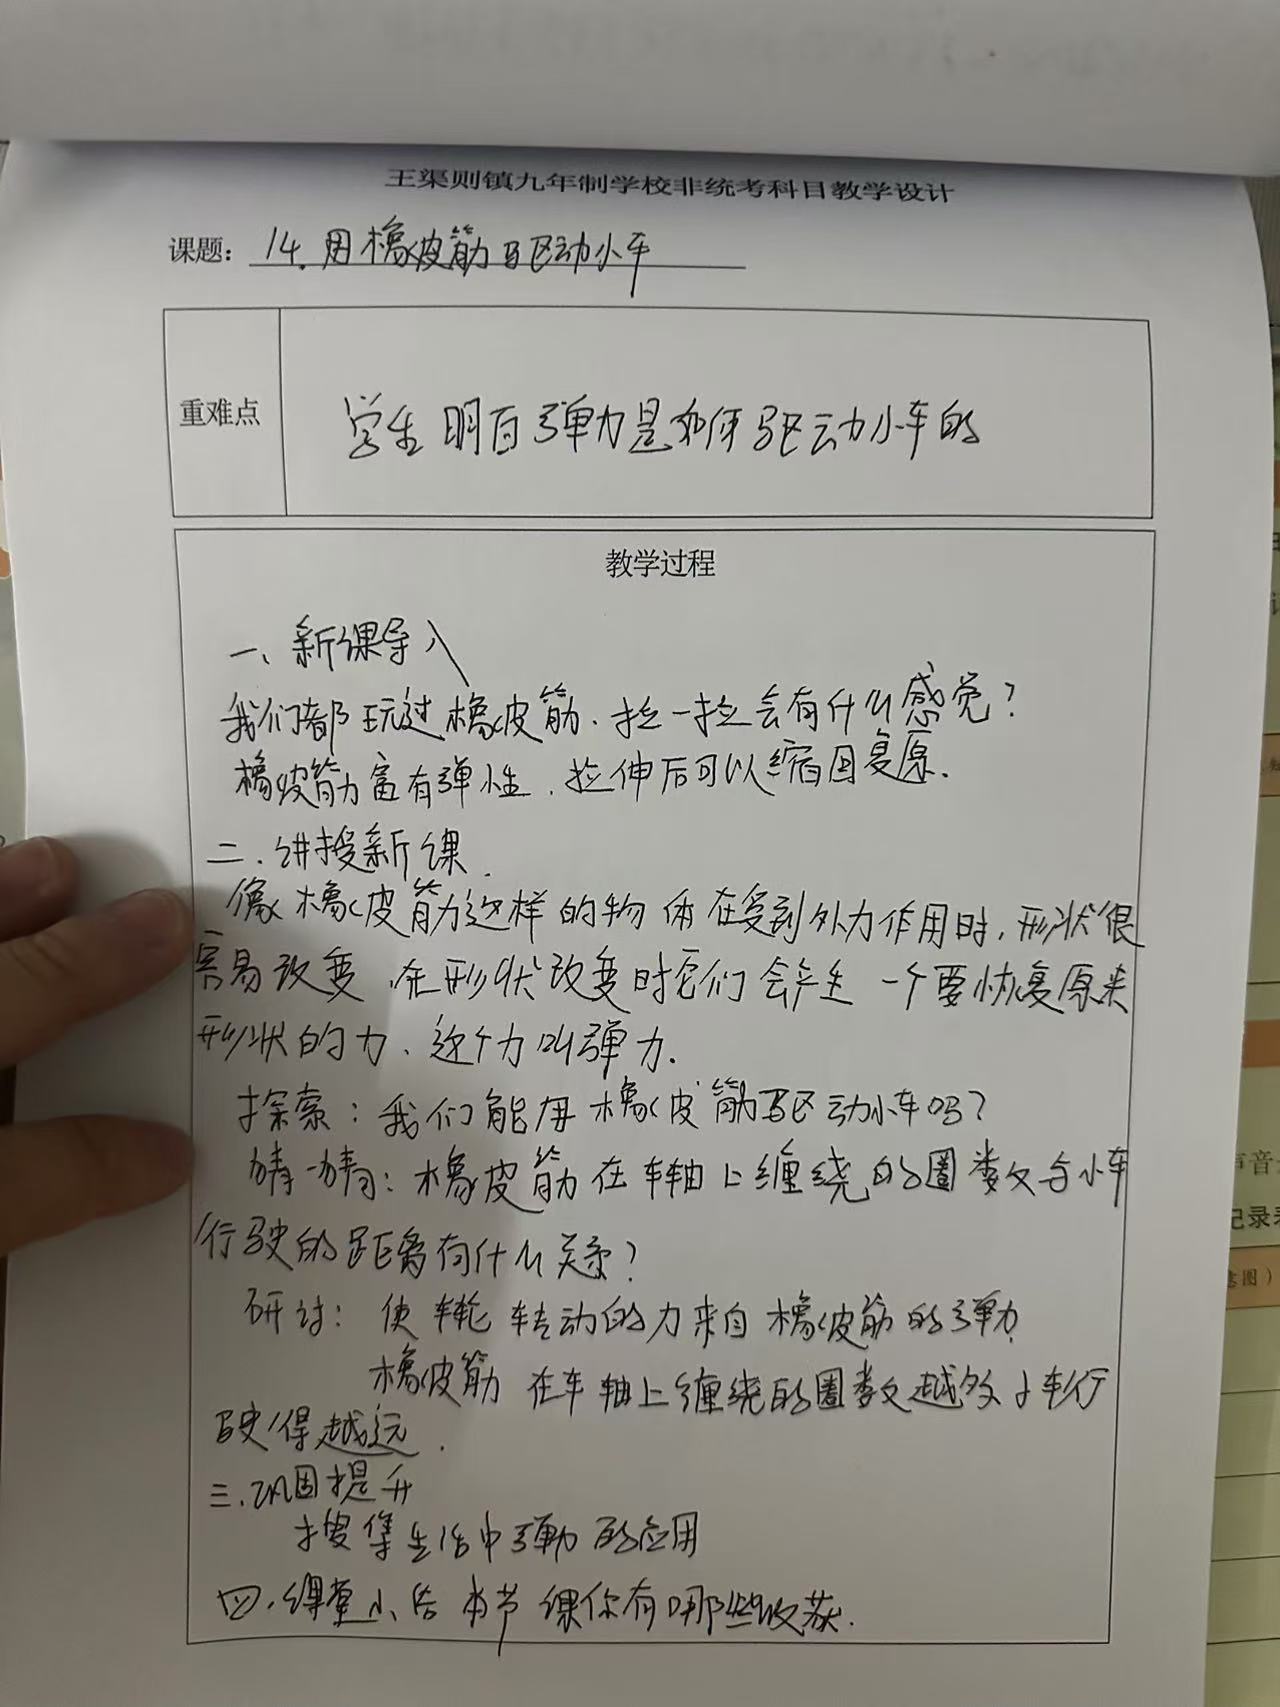 王渠则镇九年制学校非统考科目教学设计
课题：14.用橡皮筋驱动小车
重难点
学生明白弹力是如何驱动小车的
教学过程
一、新课导入
我们都玩过橡皮筋、拉一拉会有什么感觉？
橡皮筋富有弹性、拉伸后可以缩回复原.
二、讲授新课.
像橡皮筋这样的物体在受到外力作用时，形状很
容易改变、在形状改变时它们会产生一个要恢复原来
形状的力、这个力叫弹力.
探索：我们能用橡皮筋驱动小车吗？
猜一猜：橡皮筋在车轴上缠绕的圈数与小车
行驶的距离有什么关系？
研讨：使车轮转动的力来自橡皮筋的弹力.
橡皮筋在车轴上缠绕的圈数越多小车行
驶得越远.
三、巩固提升
搜集生活中弹力的应用
四、课堂小结 本节课你有哪些收获.
声音
记录表
意图）